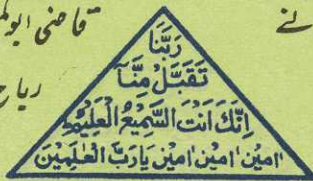 نے
قاضی ابو
ریاح
رَبَّنَا
تَقَبَّلْ مِنَّآ
اِنَّكَ اَنْتَ السَّمِيْعُ الْعَلِيْمُ
اٰمِيْن اٰمِيْن اٰمِيْن يَارَبَّ الْعٰلَمِيْنَ